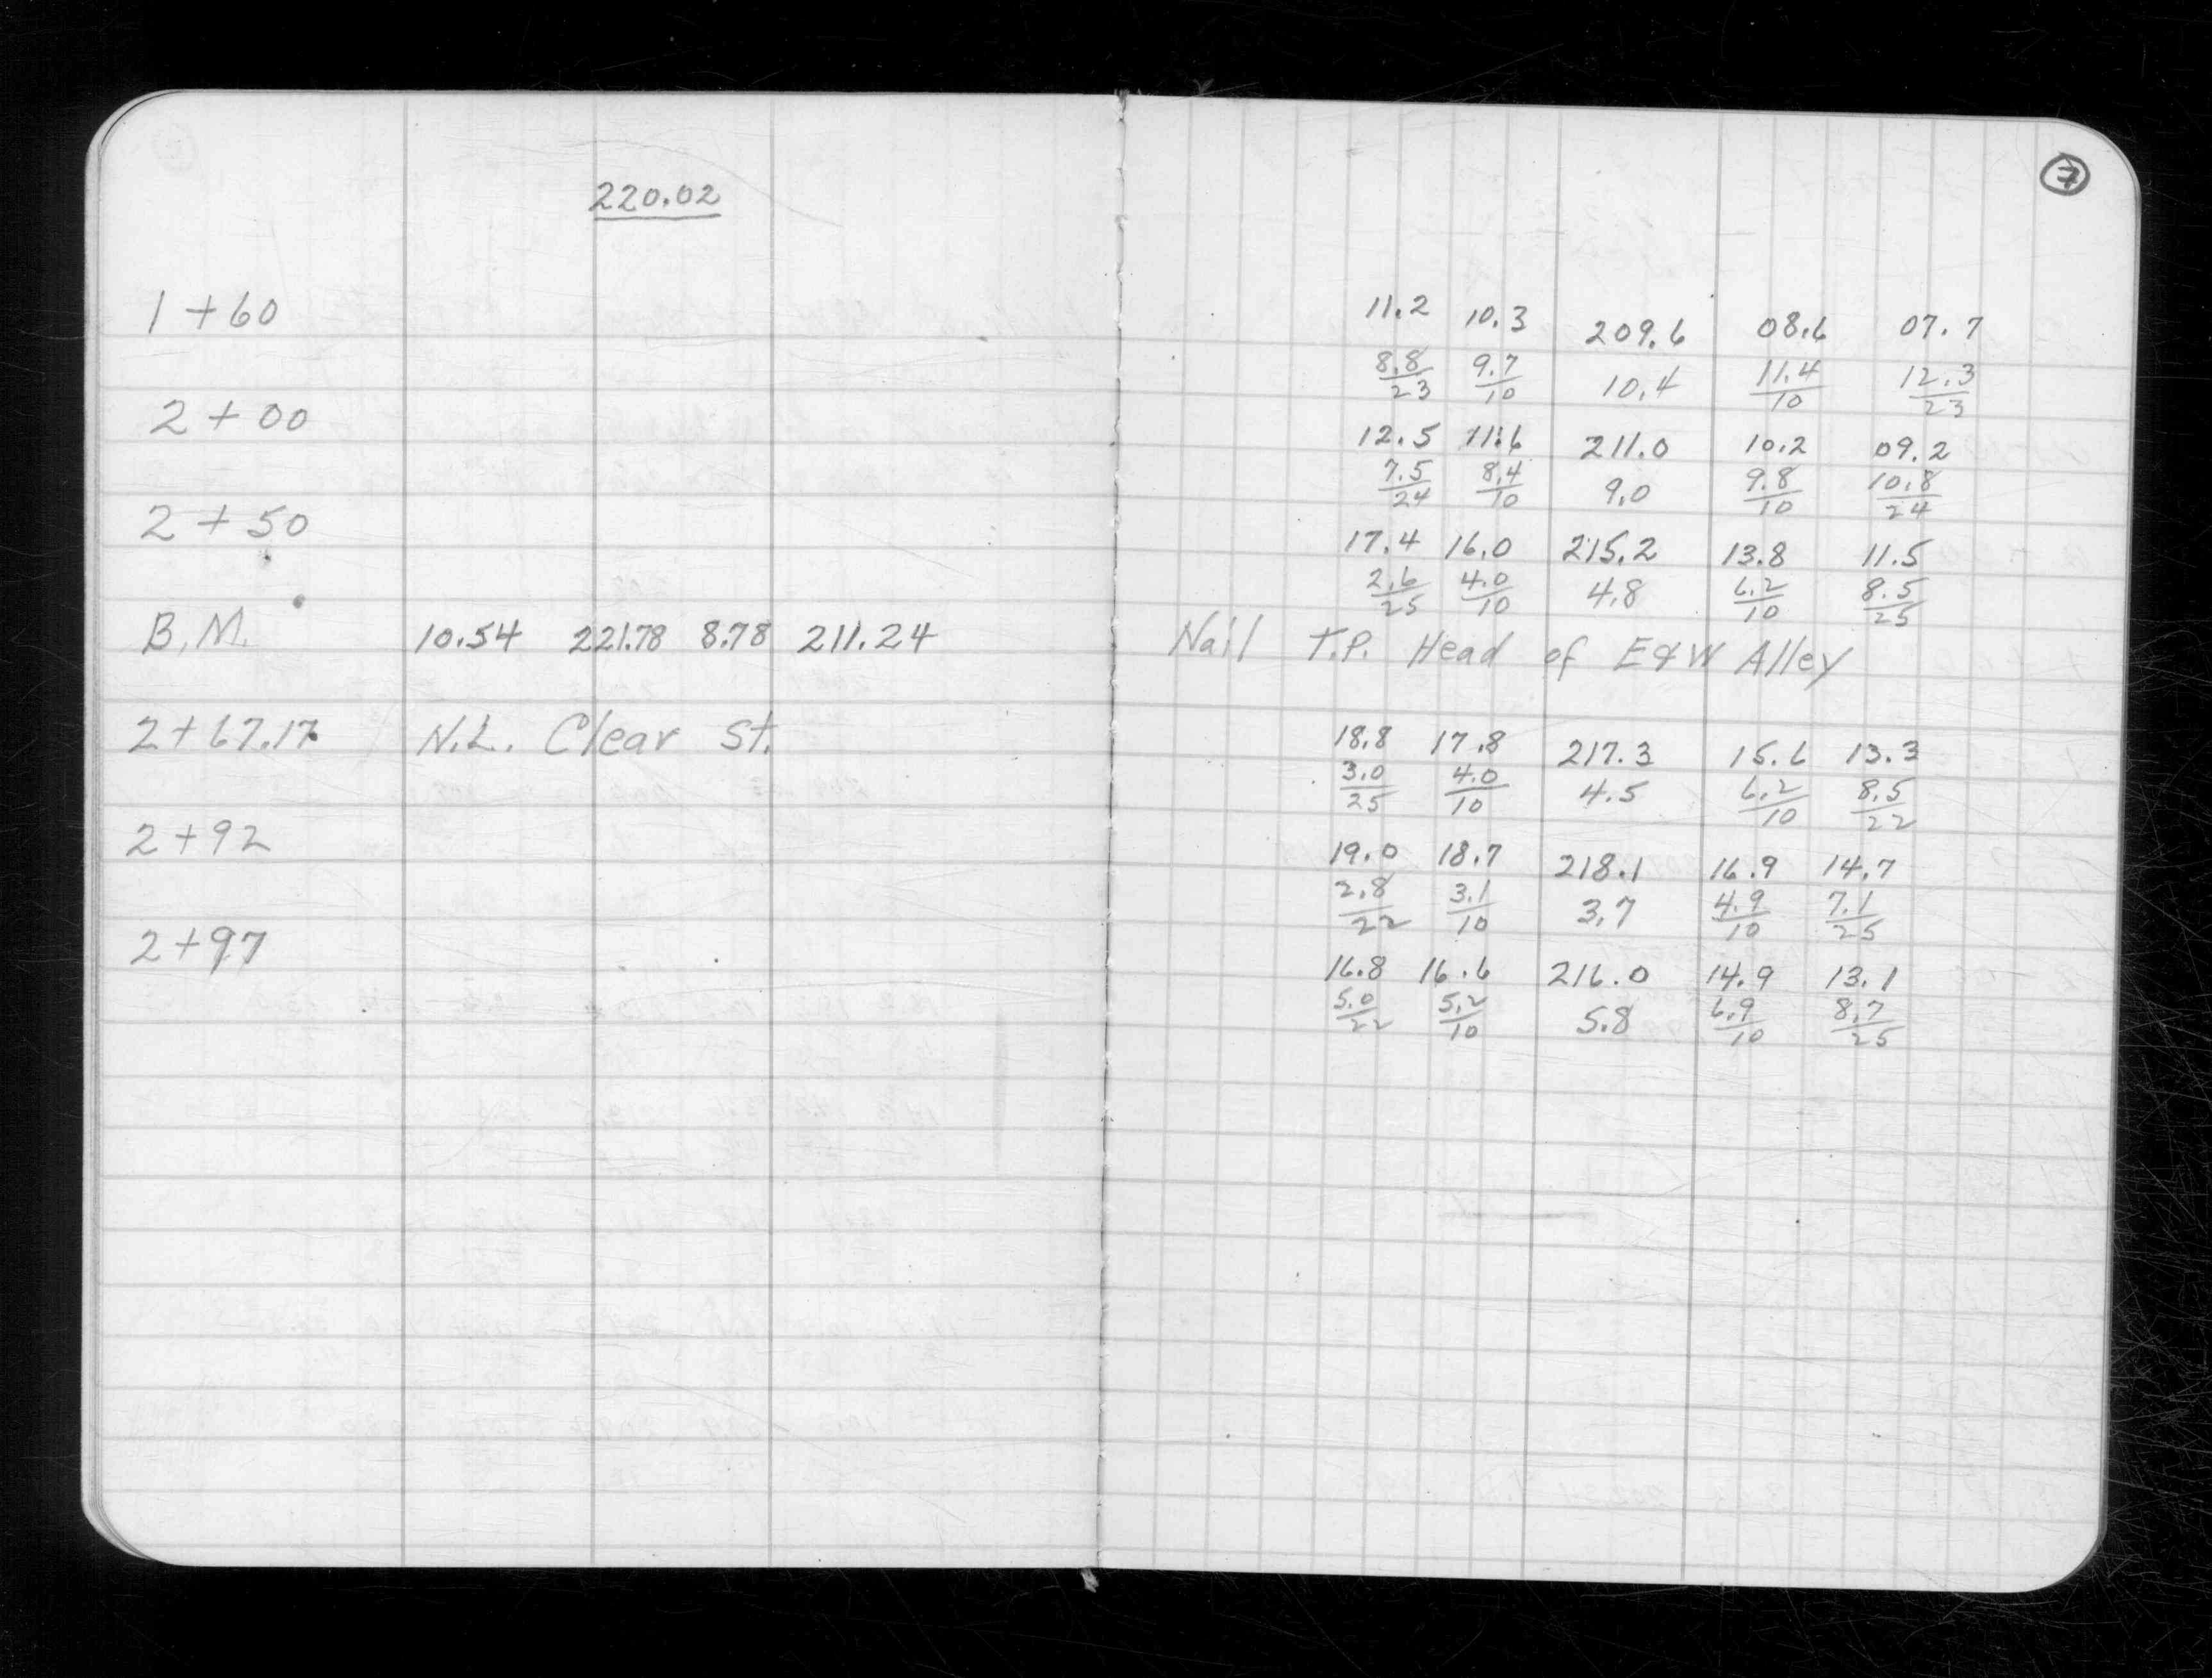 7
220.02
1+60 11.2 10.3 209.6 08.6 07.7
8.8/23 9.7/10 10.4 11.4/10 12.3/23
2+00 12.5 11.6 211.0 10.2 09.2
7.5/24 8.4/10 9.0 9.8/10 10.8/24
2+50 17.4 16.0 215.2 13.8 11.5
2.6/25 4.0/10 4.8 6.2/10 8.5/25
B.M. 10.54 221.78 8.78 211.24 Nail T.P. Head of E&W Alley
2+67.17 N.L. Clear St. 18.8 17.8 217.3 15.6 13.3
3.0/25 4.0/10 4.5 6.2/10 8.5/22
2+92 19.0 18.7 218.1 16.9 14.7
2.8/22 3.1/10 3.7 4.9/10 7.1/25
2+97 16.8 16.6 216.0 14.9 13.1
5.0/22 5.2/10 5.8 6.9/10 8.7/25